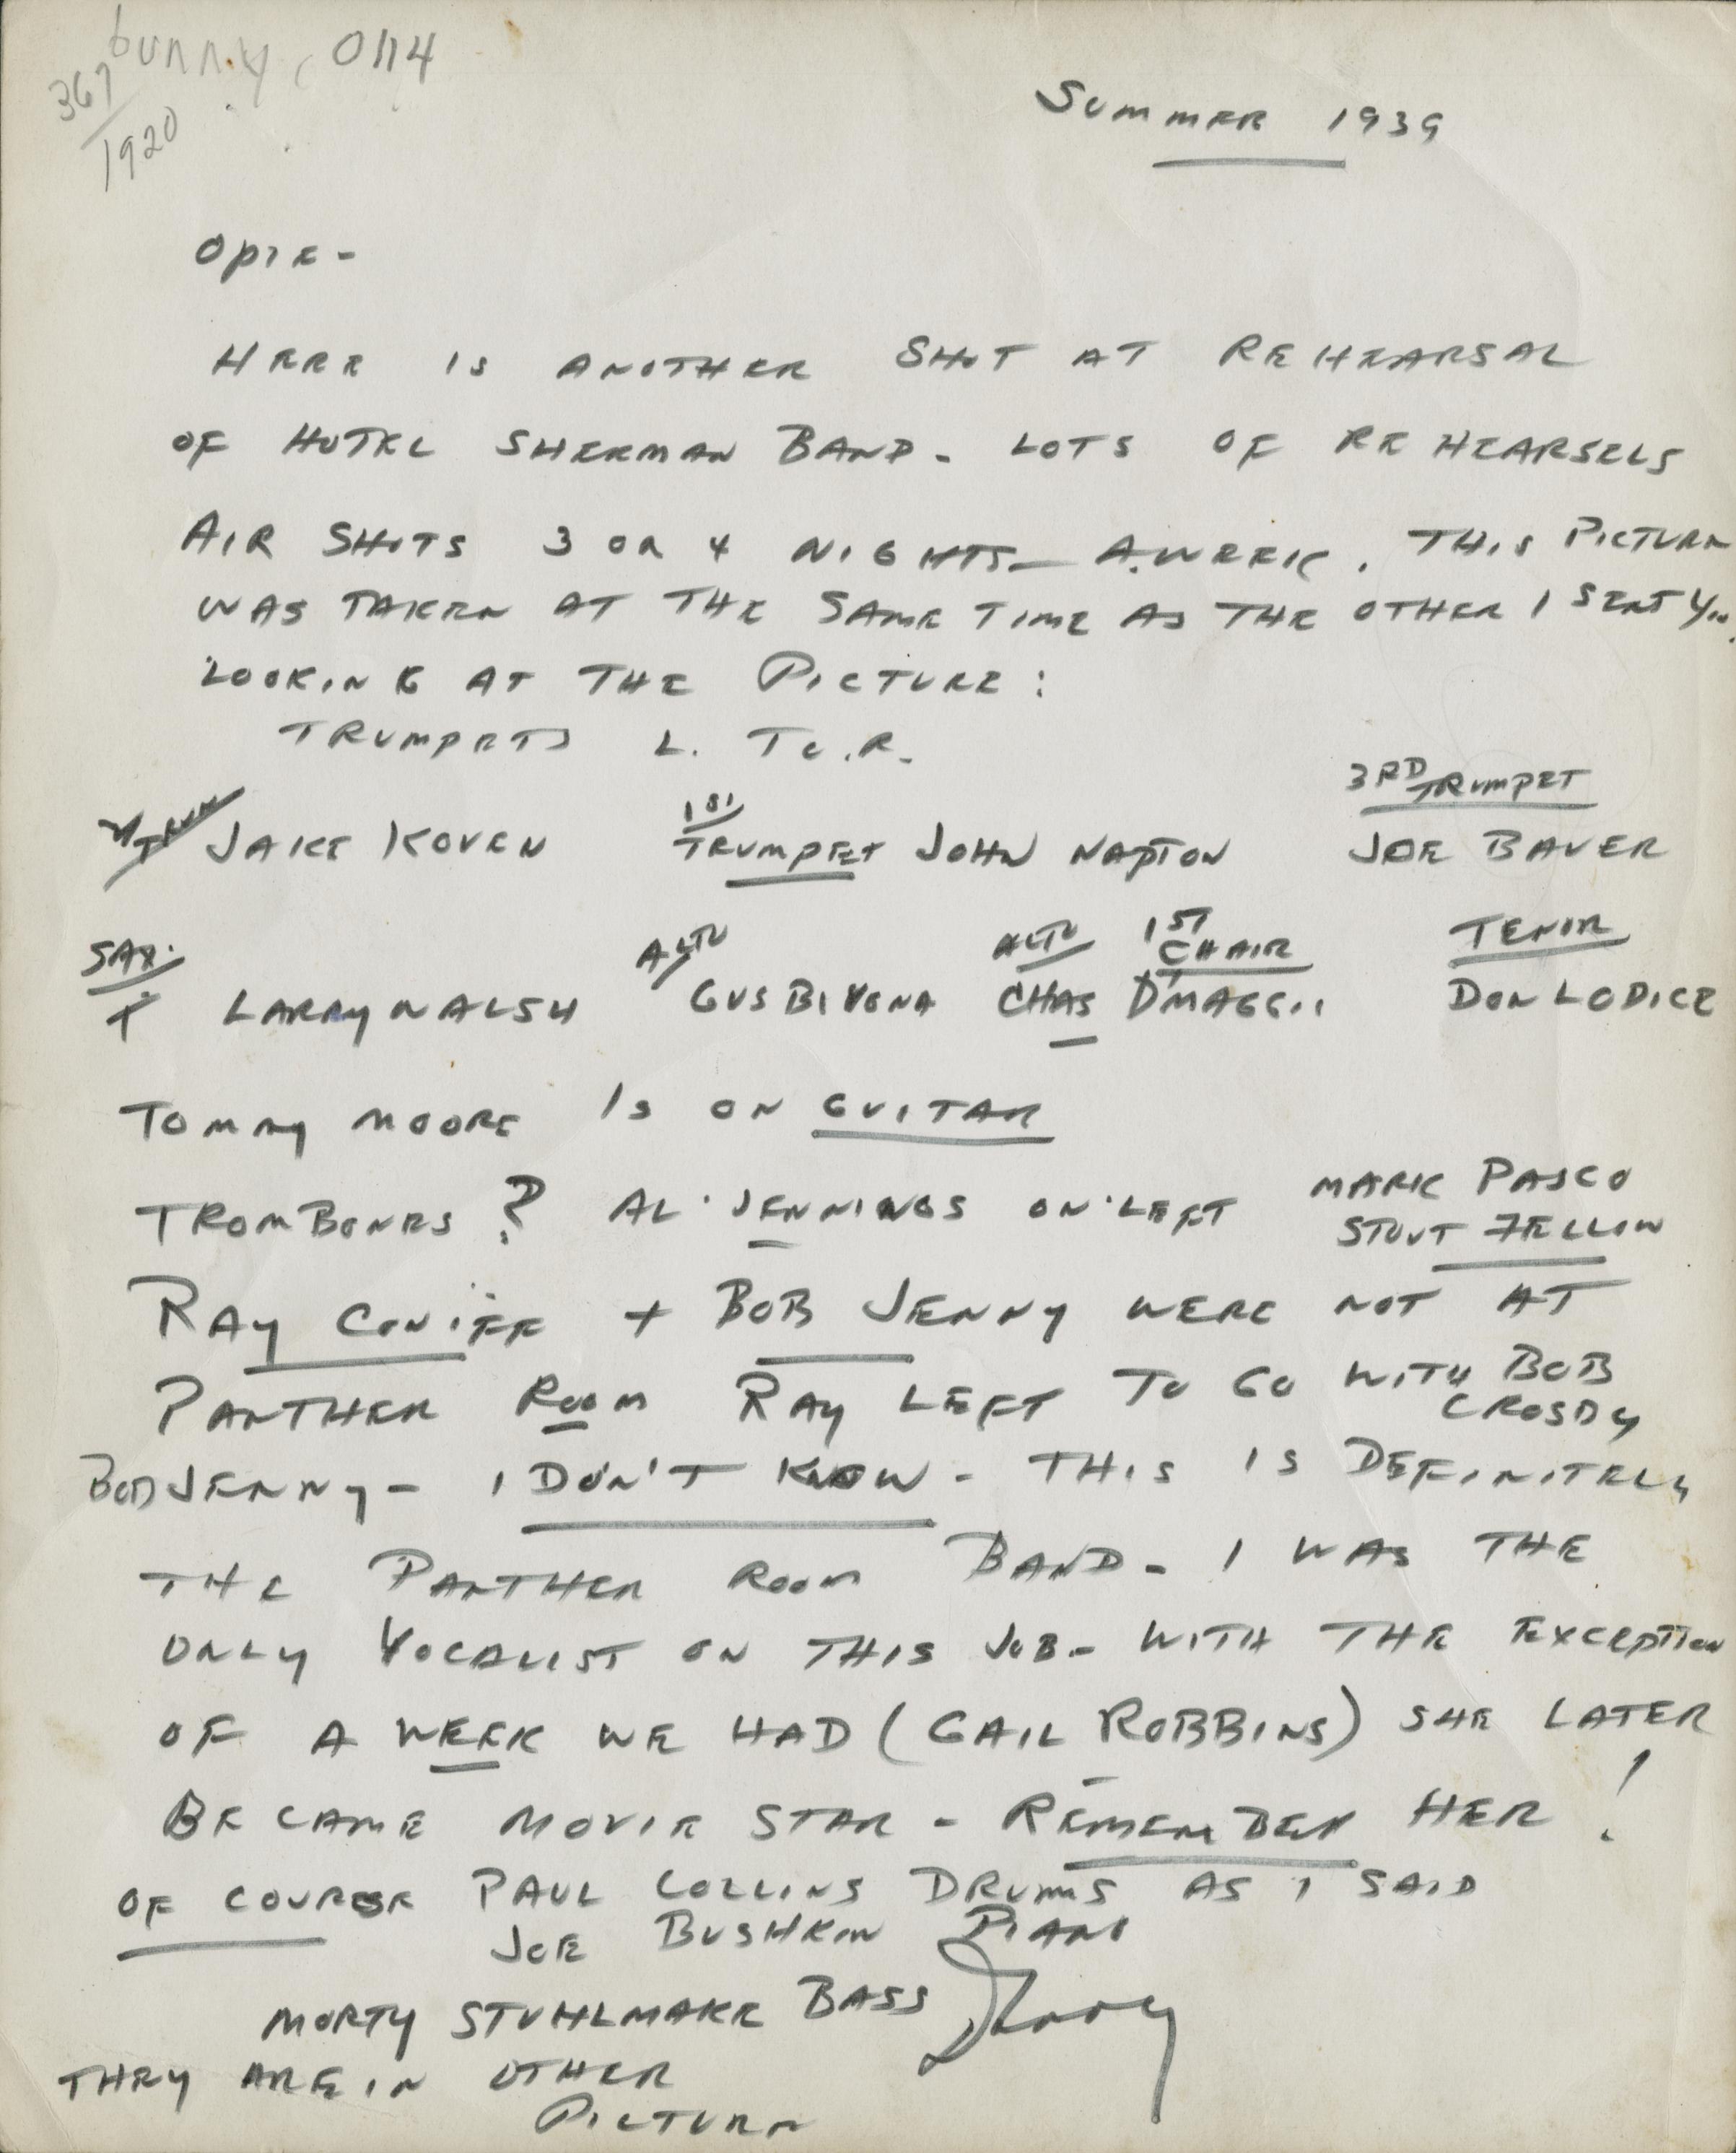 bunny, 0114
367
1920
SUMMER 1939
OPIE -
HERE IS ANOTHER SHOT AT REHEARSAL
OF HOTEL SHERMAN BAND - LOTS OF REHEARSELS
AIR SHOTS 3 OR 4 NIGHTS - A WEEK. THIS PICTURE
WAS TAKEN AT THE SAME TIME AS THE OTHER I SENT YOU.
LOOKING AT THE PICTURE:
TRUMPETS L. TO R.
JAKE KOVEN 1ST TRUMPET JOHN NAPTON 3RD TRUMPET JOE BAUER
SAX. ALTO ALTO 1ST CHAIR TENOR
T LARRY WALSH GUS BIVONA CHAS D'MAGGIO DON LODICE
TOMMY MOORE IS ON GUITAR
TROMBONES ? AL JENNINGS ON LEFT MARK PASCO
STOUT FELLOW
RAY CONIFF + BOB JENNY WERE NOT AT
PANTHER ROOM RAY LEFT TO GO WITH BOB
CROSBY
BOB JENNY - I DON'T KNOW - THIS IS DEFINITELY
THE PANTHER ROOM BAND - I WAS THE
ONLY VOCALIST ON THIS JOB - WITH THE EXCEPTION
OF A WEEK WE HAD (GAIL ROBBINS) SHE LATER
BECAME MOVIE STAR - REMEMBER HER !
OF COURSE PAUL COLLINS DRUMS AS I SAID
JOE BUSHKIN PIANO
MORTY STUHLMAKE BASS
THEY ARE IN OTHER
PICTURE